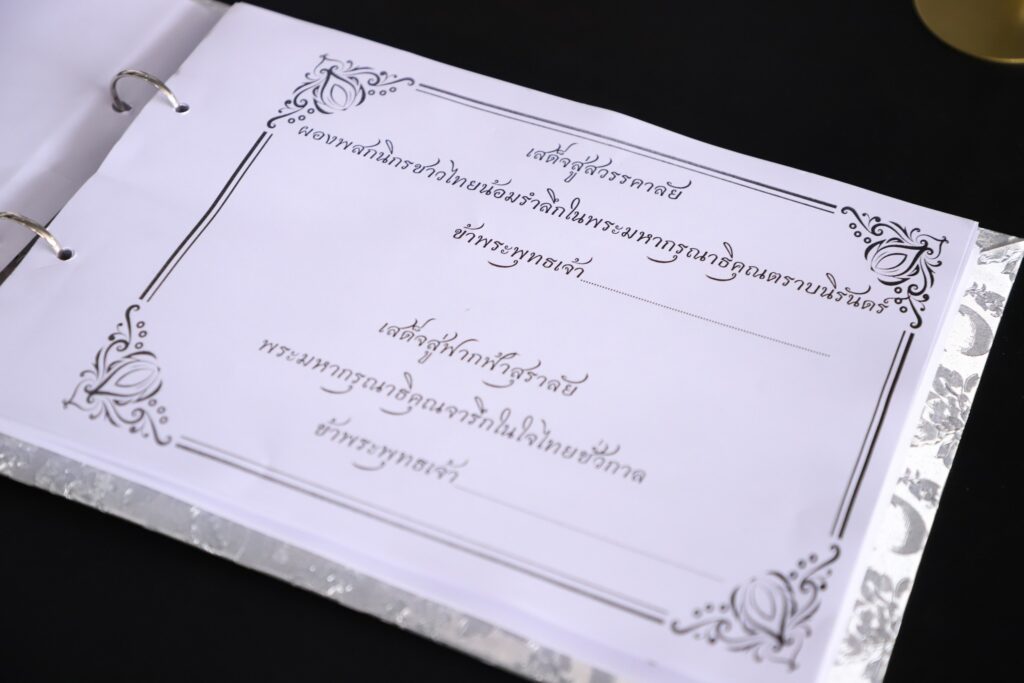 เสด็จสู่สวรรคาลัย
ผองพสกนิกรชาวไทยน้อมรำลึกในพระมหากรุณาธิคุณตราบนิรันดร์
ข้าพระพุทธเจ้า........................................
เสด็จสู่ฟากฟ้าสุราลัย
พระมหากรุณาธิคุณจารึกในใจไทยชั่วกาล
ข้าพระพุทธเจ้า........................................